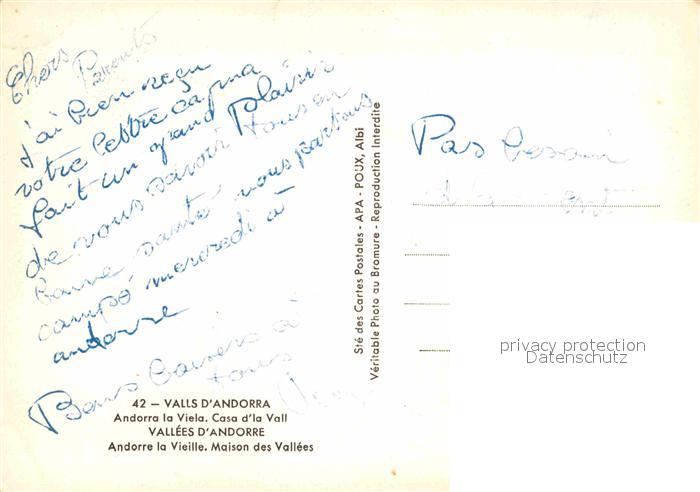 Chers Parents
J'ai bien reçu
votre lettre ça ma
fait un grand Plaisir
de vous savoir tous en
bonne santé. nous partons
campé mercredi à
andorre
Bons baisers à
tous
Pas besoin
42 — VALLS D'ANDORRA
Andorra la Viela. Casa d'la Vall
VALLÉES D'ANDORRE
Andorre la Vieille. Maison des Vallées
Sté des Cartes Postales - APA - POUX, Albi
Véritable Photo au Bromure - Reproduction Interdite
privacy protection
Datenschutz